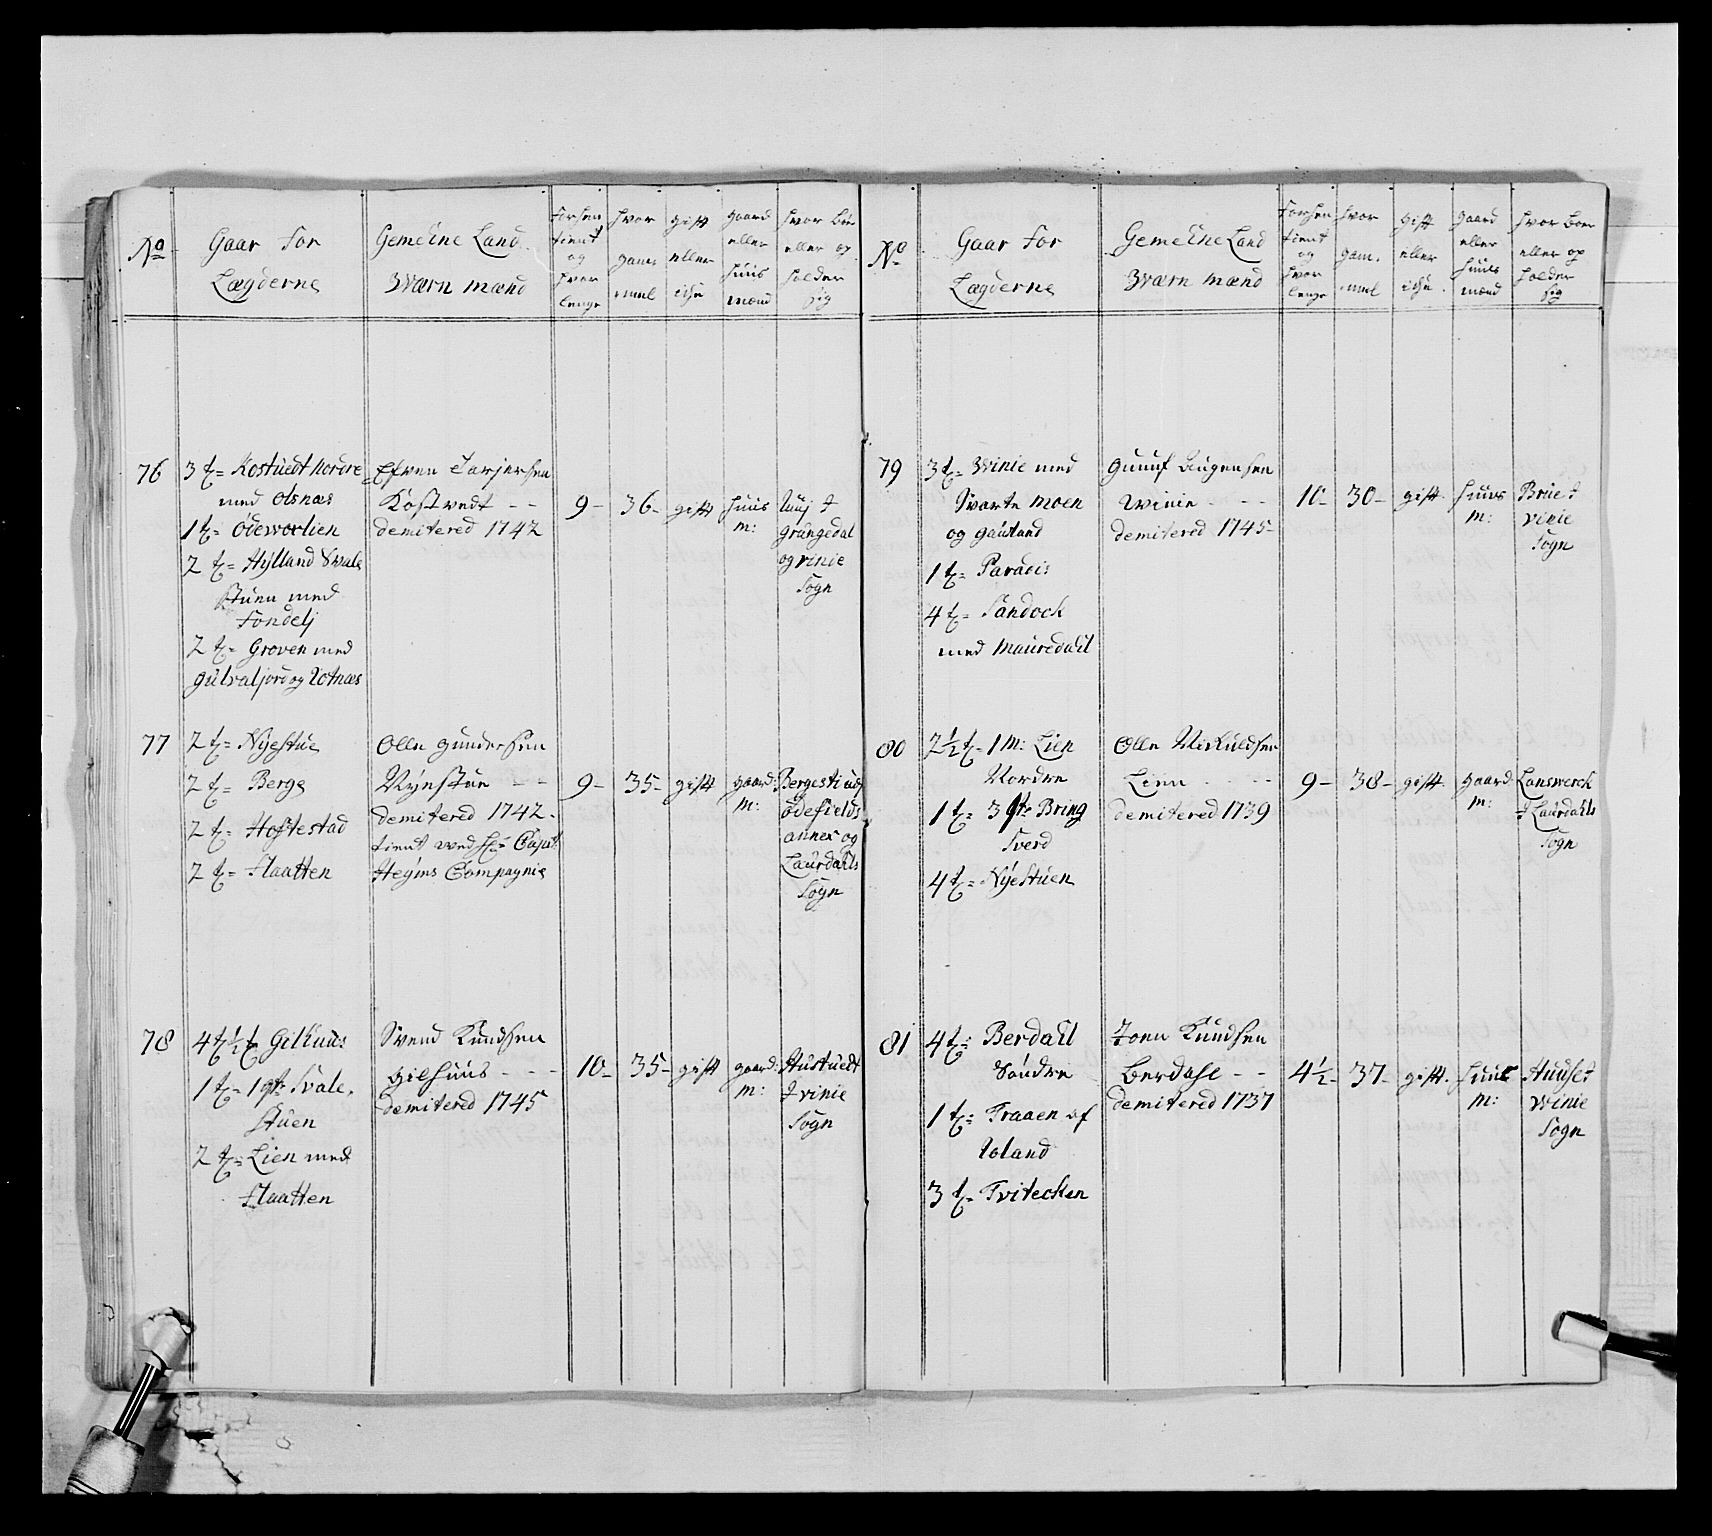 No
Gaar For
Lægderne
Gemeine Land
Wærn mænd
Forhen
tient
og
hvor
lenge
hvor
gam-
mel
gift
eller
eike
gaard
eller
huus
mænd
hvor boer
eller op
holder
sig
76
3 t= Kostuedt Nordre
med Olsnæs
1 t= Ödeworlien
2 t= Hylland Swale
Stuen med
Fondelj
2 t= Groven med
gulvaljord og Lotnæs
Efven Tarjersen
Kostvedt - -
demitered 1742
9-
36-
gift
huus
m:
Grungedal
og vinie
Sogn
77
2 t= Nyestue
2 t= Berge
2 t= Hoftestad
2 t= Flaatten
Olle gundersen
Nynstun - -
demitered 1742.
tient wed Hr Capit:
Heyins Compagnie
9-
35-
gift
gaard:
m:
Bergestuedt
ödefields
annex og
Laurdahls
Sogn
78
4 t ½ t Gilhuus
1 t= 1 qtr Svale,
Stuen
2 t= Lien med
Flaatten
Svend Knudsen
Gilhuus - - -
demitered 1745
10-
35-
gift
gaard:
m:
Hustuedt
J vinie
Sogn
No
Gaar For
Lægderne
Gemeine Land
Wærn mænd
Forhen
tient
og
hvor
lenge
hvor
gam-
mel
gift
eller
eike
gaard
eller
huus
mænd
hvor boer
eller op
holder
sig
79
3 t= Winie med
Svarte moen
og gautland
1 t= Paradis
4 t= Sandock
med Mauredahl
Gunuf Augensen
Winie - - -
demitered 1745-
10-
30-
gift
huus
m:
Brue J
vinie
Sogn
80
2½ t- 1 m: Lien
Nordre
1 t= 3 qtr Bring
Sverd
4 t= Nyestuen
Olle Niskuldsen
Lien - - -
demitered 1739
9-
38-
gift.
gaard
m:
Lanswerck
J Laurdahls
Sogn
81
4 t= Berdahl
Söndre
1 t= Traaen af
Loland
3 t= Tvitecken
Joen Knudsen
Berdahl - -
demitered 1737
4½-
37-
gift.
huus
m:
Huuse J
Winie
Sogn